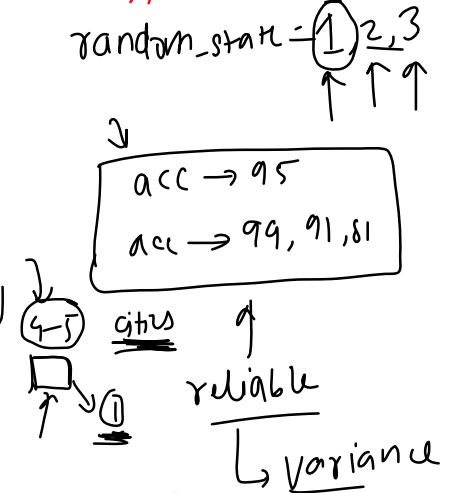 random_state = 1, 2, 3
acc → 95
acc → 99, 91, 81
4-5 cities
1
reliable
↳ variance